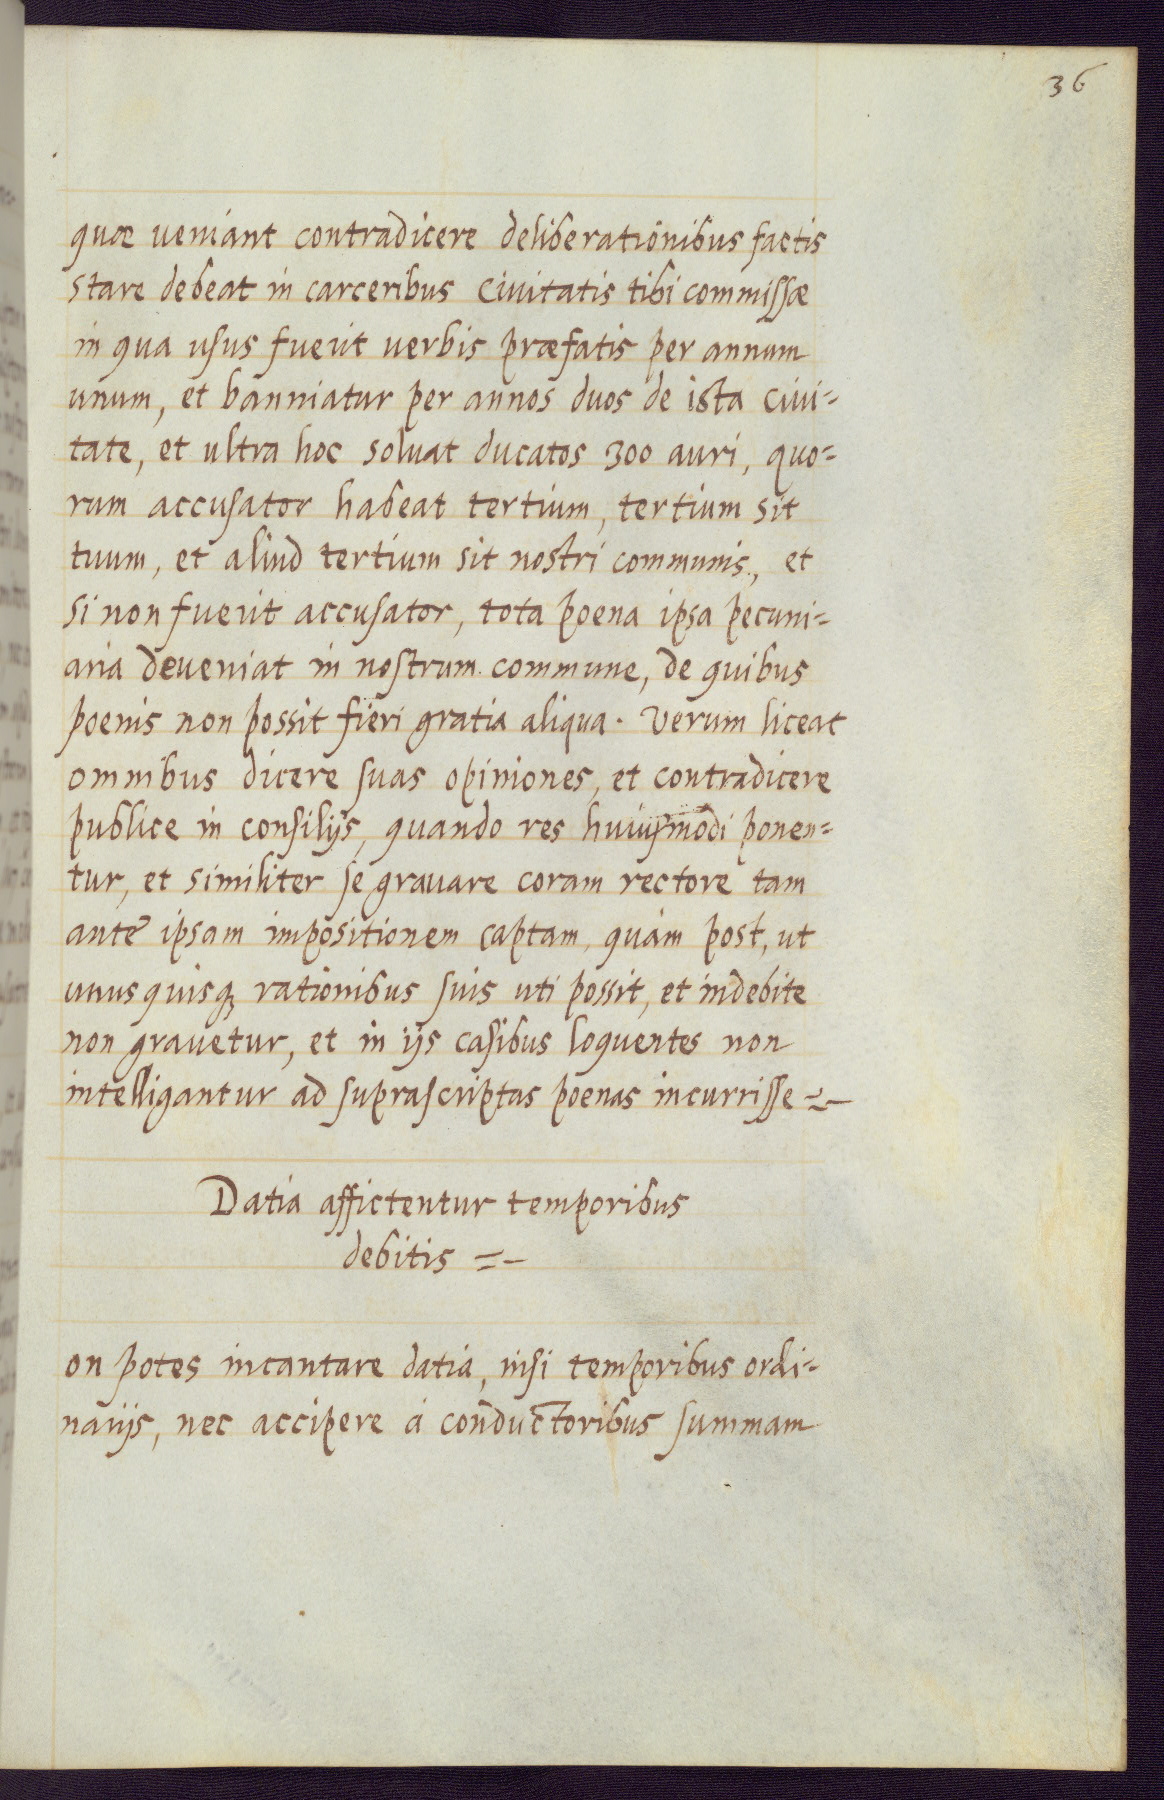 36
quæ veniant contradicere deliberationibus factis
stare debeat in carceribus Civitatis tibi commissæ
in qua usus fuerit verbis præfatis per annum
unum, et banniatur per annos duos de ista Civi=
tate, et ultra hoc solvat ducatos 300 auri, quo=
rum accusator habeat tertium, tertium sit
tuum, et aliud tertium sit nostri communis, et
si non fuerit accusator, tota poena ipsa pecuni=
aria deveniat in nostrum commune, de quibus
poenis non possit fieri gratia aliqua. Verum liceat
omnibus dicere suas opiniones, et contradicere
publice in consilijs, quando res huiusmodi ponen=
tur, et similiter se gravare coram rectore tam
ante ipsam impositionem captam, quàm post, ut
unusquisq; rationibus suis uti possit, et indebite
non gravetur, et in ijs casibus loquentes non
intelligantur ad suprascriptas poenas incurrisse =-
Datia affictentur temporibus
debitis =-
on potes incantare datia, nisi temporibus ordi=
narijs, nec accipere à conductoribus summam